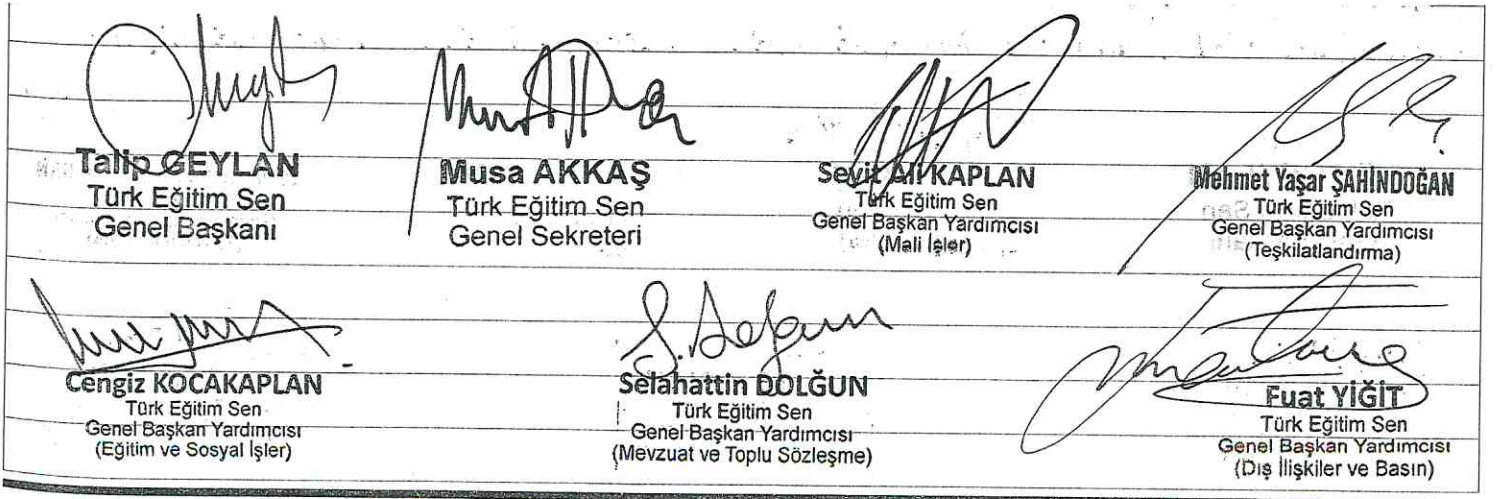 Talip GEYLAN
Türk Eğitim Sen
Genel Başkanı
Musa AKKAŞ
Türk Eğitim Sen
Genel Sekreteri
Seyit Ali KAPLAN
Türk Eğitim Sen
Genel Başkan Yardımcısı
(Mali İşler)
Mehmet Yaşar ŞAHİNDOĞAN
Türk Eğitim Sen
Genel Başkan Yardımcısı
(Teşkilatlandırma)
Cengiz KOCAKAPLAN
Türk Eğitim Sen
Genel Başkan Yardımcısı
(Eğitim ve Sosyal İşler)
Selahattin DOLĞUN
Türk Eğitim Sen
Genel Başkan Yardımcısı
(Mevzuat ve Toplu Sözleşme)
Fuat YİĞİT
Türk Eğitim Sen
Genel Başkan Yardımcısı
(Dış İlişkiler ve Basın)